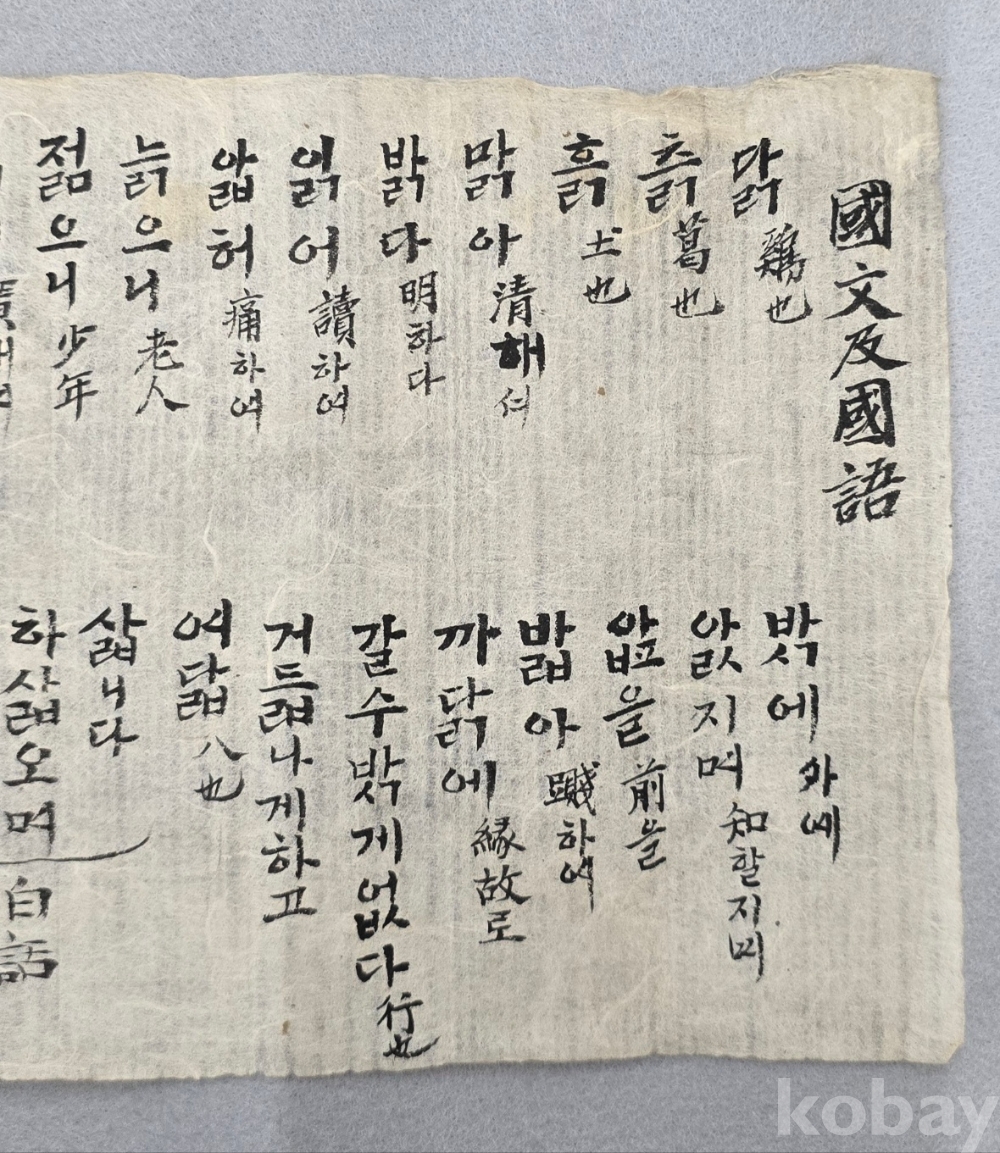 國文及國語
닭 鷄也
츩 葛也
흙 土也
맑아 清해셔
밝다 明하다
읽어 讀하여
앏허 痛하여
늙으니 老人
젊으니 少年
밗에 外에
앐지며 知할지며
을 前을
밟아 踐하여
까닭에 緣故로
갈수밗게없다 行也
거듧나게하고
여닯 八也
삷니다
하삷오며 白話